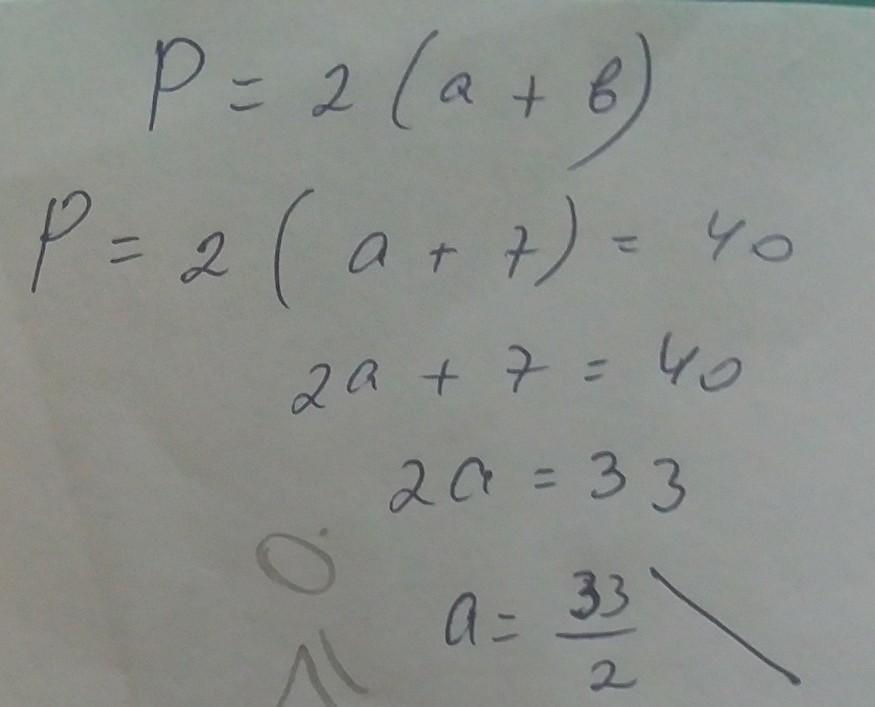 P = 2 (a + b)
P = 2 (a + 7) = 40
2a + 7 = 40
2a = 33
a = 33/2